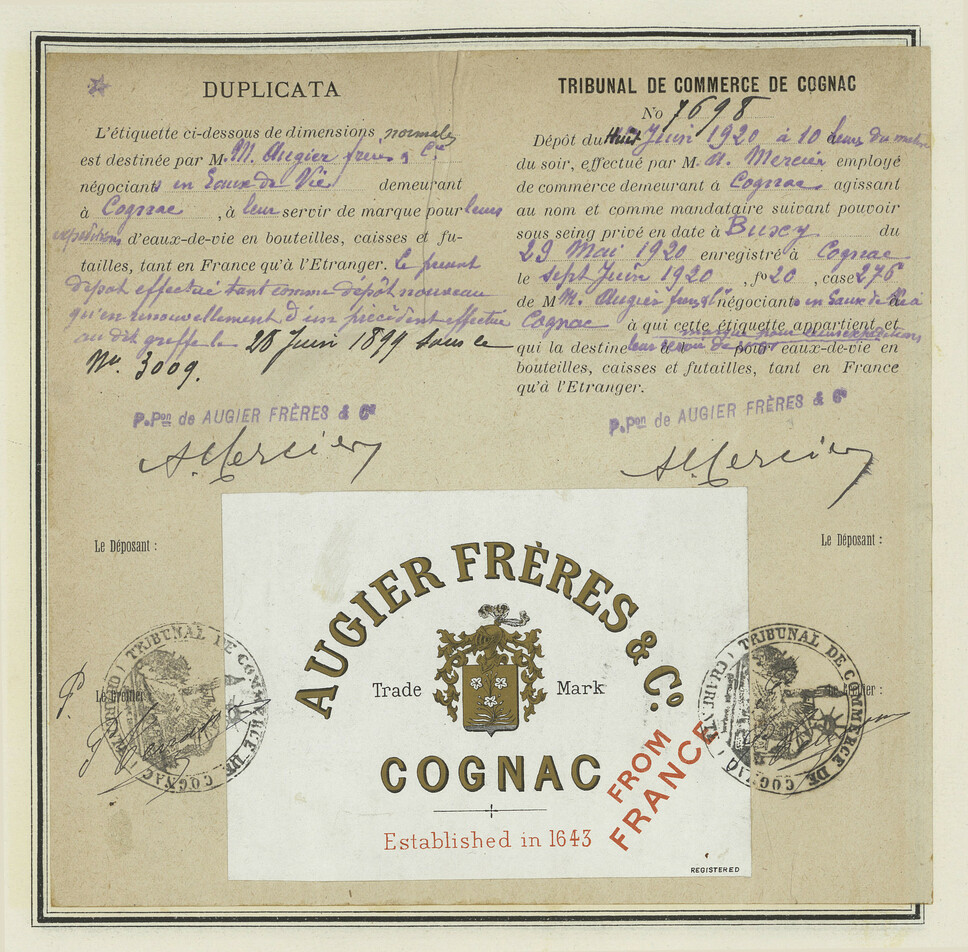 DUPLICATA
L'étiquette ci-dessous de dimensions normales
est destinée par M.M. Augier frères & Cie
négociants en Eaux de Vie demeurant
à Cognac, à leur servir de marque pour leurs
expéditions d'eaux-de-vie en bouteilles, caisses et fu-
tailles, tant en France qu'à l'Etranger. Le présent
dépôt effectué tant comme dépôt nouveau
qu'en renouvellement d'un précédent effectué
au dit greffe le 28 Juin 1899 sous le
No. 3009.
P.Pon de AUGIER FRÈRES & Co
A. Mercier
Le Déposant :
Le Greffier :
TRIBUNAL DE COMMERCE DE COGNAC
No 7698
Dépôt du Huit Juin 1920 à 10 heures du matin
du soir, effectué par M. A. Mercier employé
de commerce demeurant à Cognac, agissant
au nom et comme mandataire suivant pouvoir
sous seing privé en date à du
29 Mai 1920 enregistré à Cognac
le sept Juin 1920, fo 20, case 276
de M.M. Augier frères négociants en Eaux de Vie à
Cognac à qui cette étiquette appartient et
qui la destine eaux-de-vie en
bouteilles, caisses et futailles, tant en France
qu'à l'Etranger.
P.Pon de AUGIER FRÈRES & Co
A. Mercier
Le Déposant :
Le Greffier :
TRIBUNAL DE COMMERCE DE COGNAC
TRIBUNAL DE COMMERCE DE COGNAC
AUGIER FRÈRES & Co.
Trade Mark
COGNAC
Established in 1643
FROM
FRANCE
REGISTERED